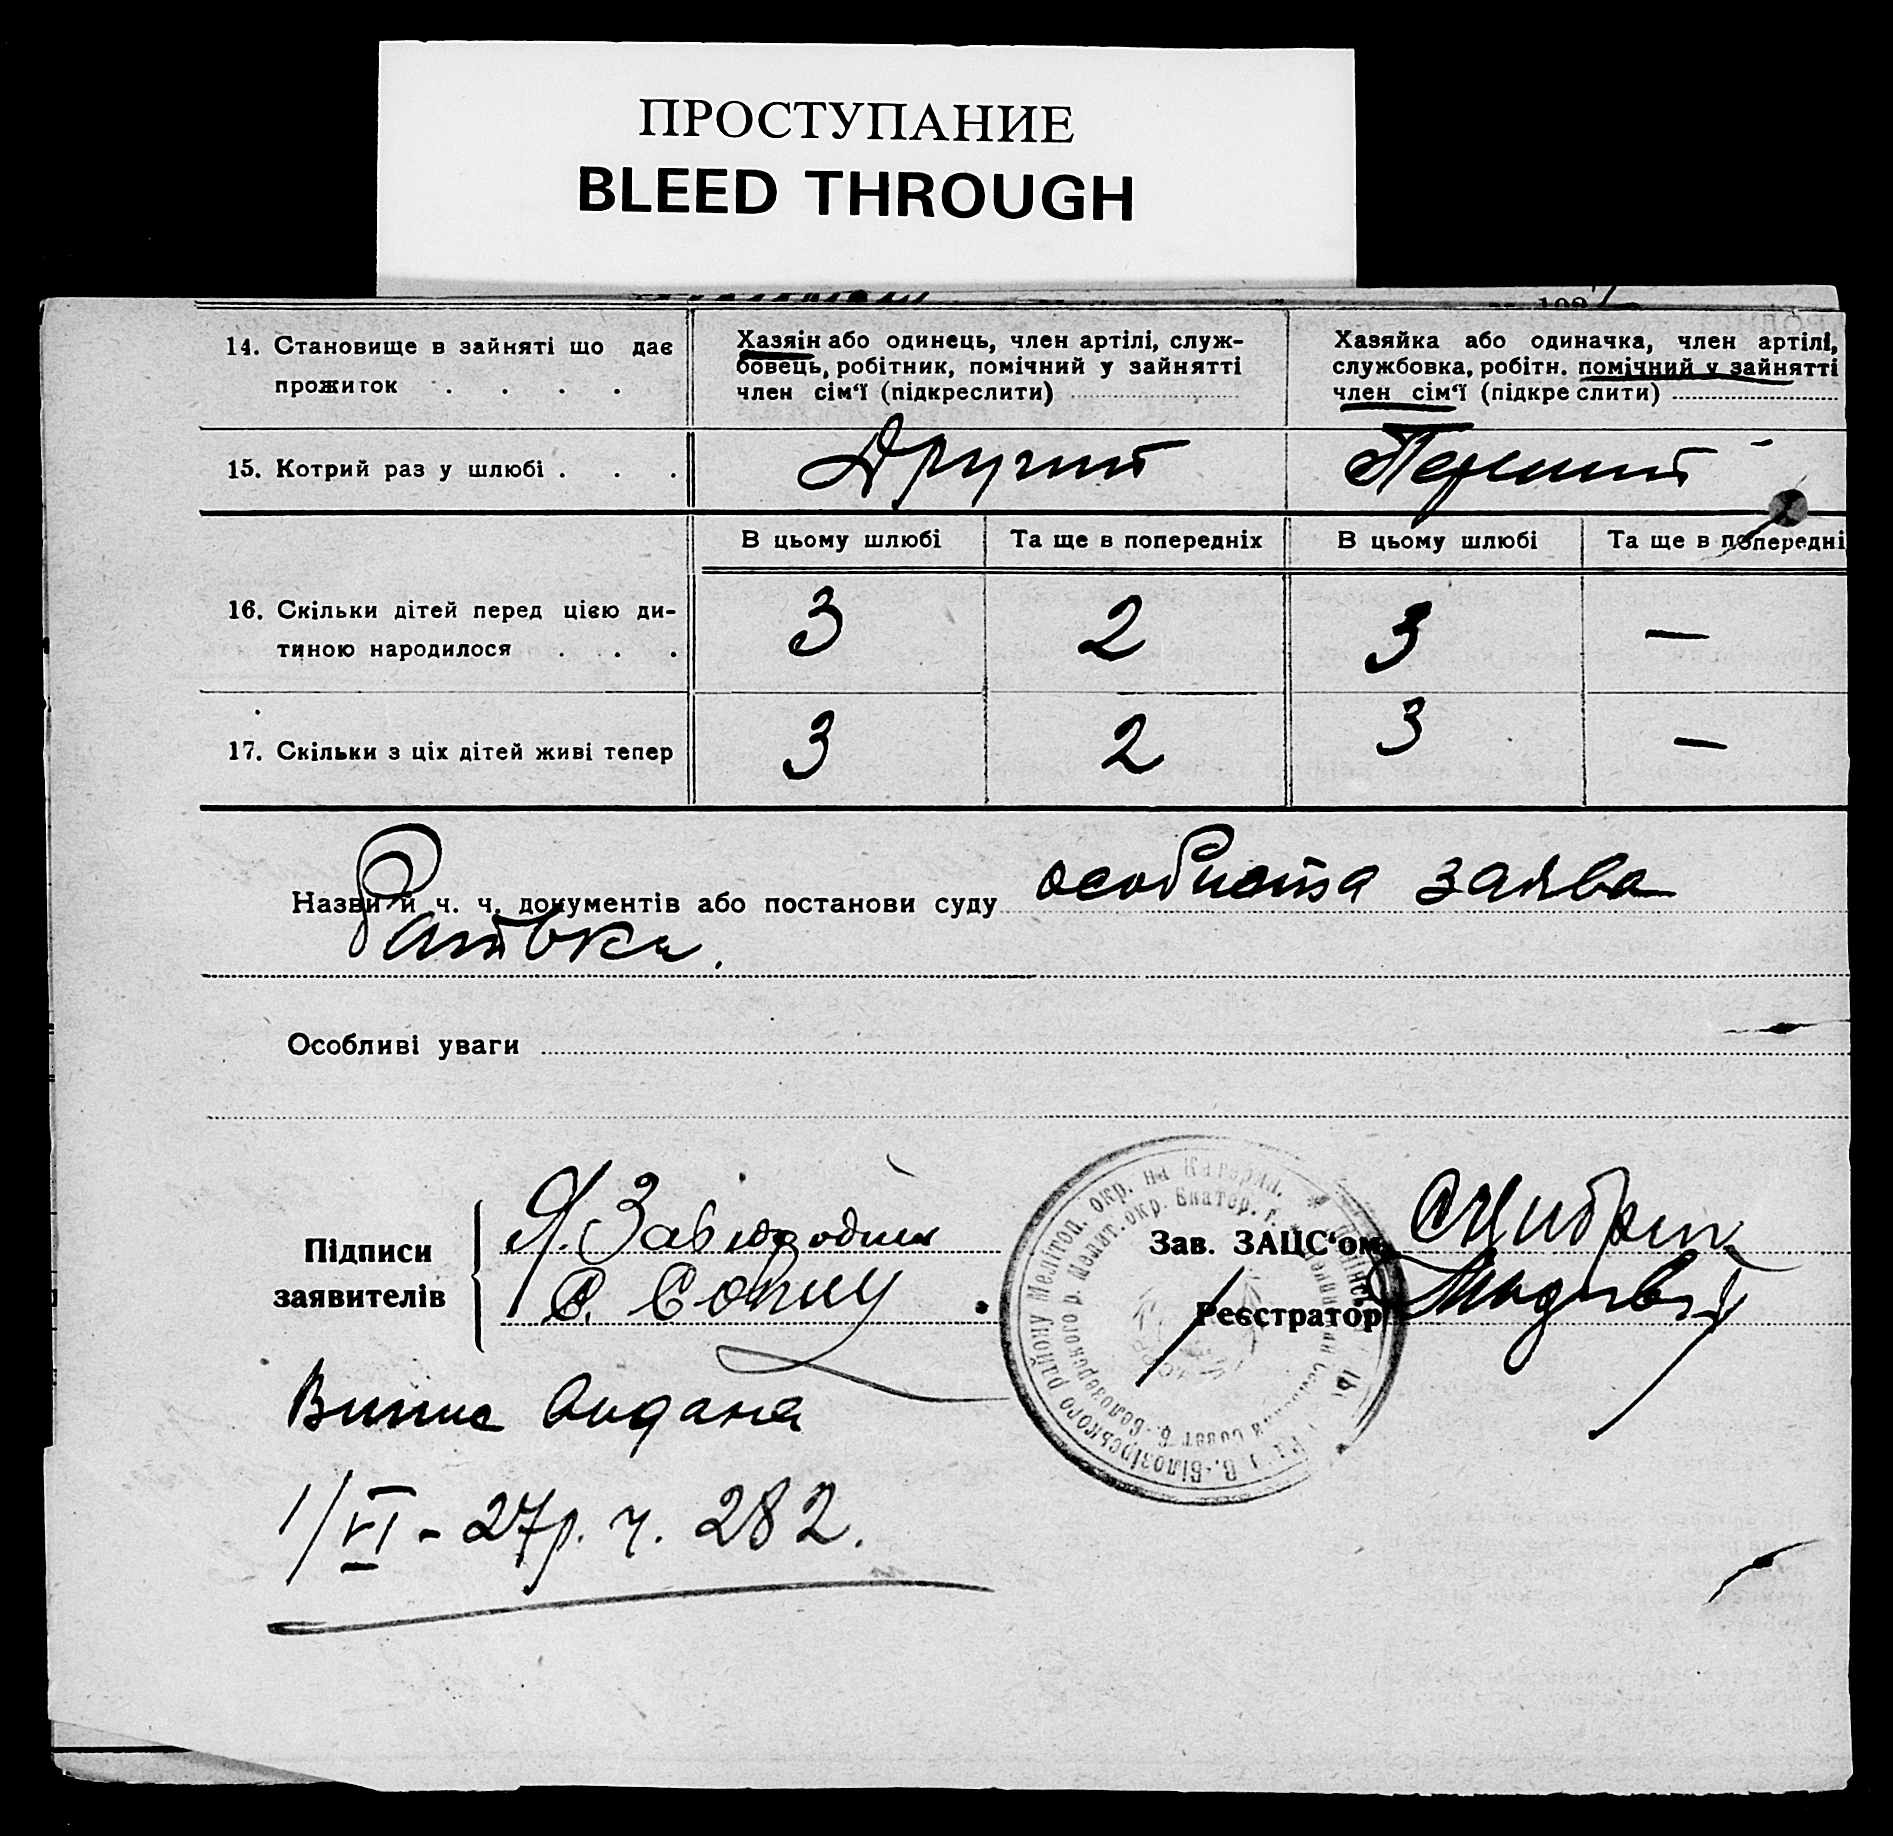 ПРОСТУПАНИЕ
BLEED THROUGH
14. Становище в зайняті що дає
прожиток . . . .
Хазяін або одинець, член артілі, служ-
бовець, робітник, помічний у зайнятті
член сім‘ї (підкреслити)
Хазяйка або одиначка, член артілі,
службовка, робітн. помічний у зайнятті
член сім‘ї (підкреслити)
15. Котрий раз у шлюбі . . .
Другий
Перший
В цьому шлюбі
Та ще в попередніх
В цьому шлюбі
Та ще в попередні
16. Скільки дітей перед цією ди-
тиною народилося . . .
3
2
3
—
17. Скільки з ціх дітей живі тепер
3
2
3
—
Назви й ч. ч. документів або постанови суду особиста заява
Батька.
Особливі уваги
Підписи
заявителів
Я. Завгородній
С.
Зав. ЗАЦС‘ом
Реєстратор
В.-Білозірського району Мелітоп. окр. на Катерин.
Б.-Белозерского р. Мелит. окр. Екатер. г.
Випис видана
1/VI - 27р. ч. 282.